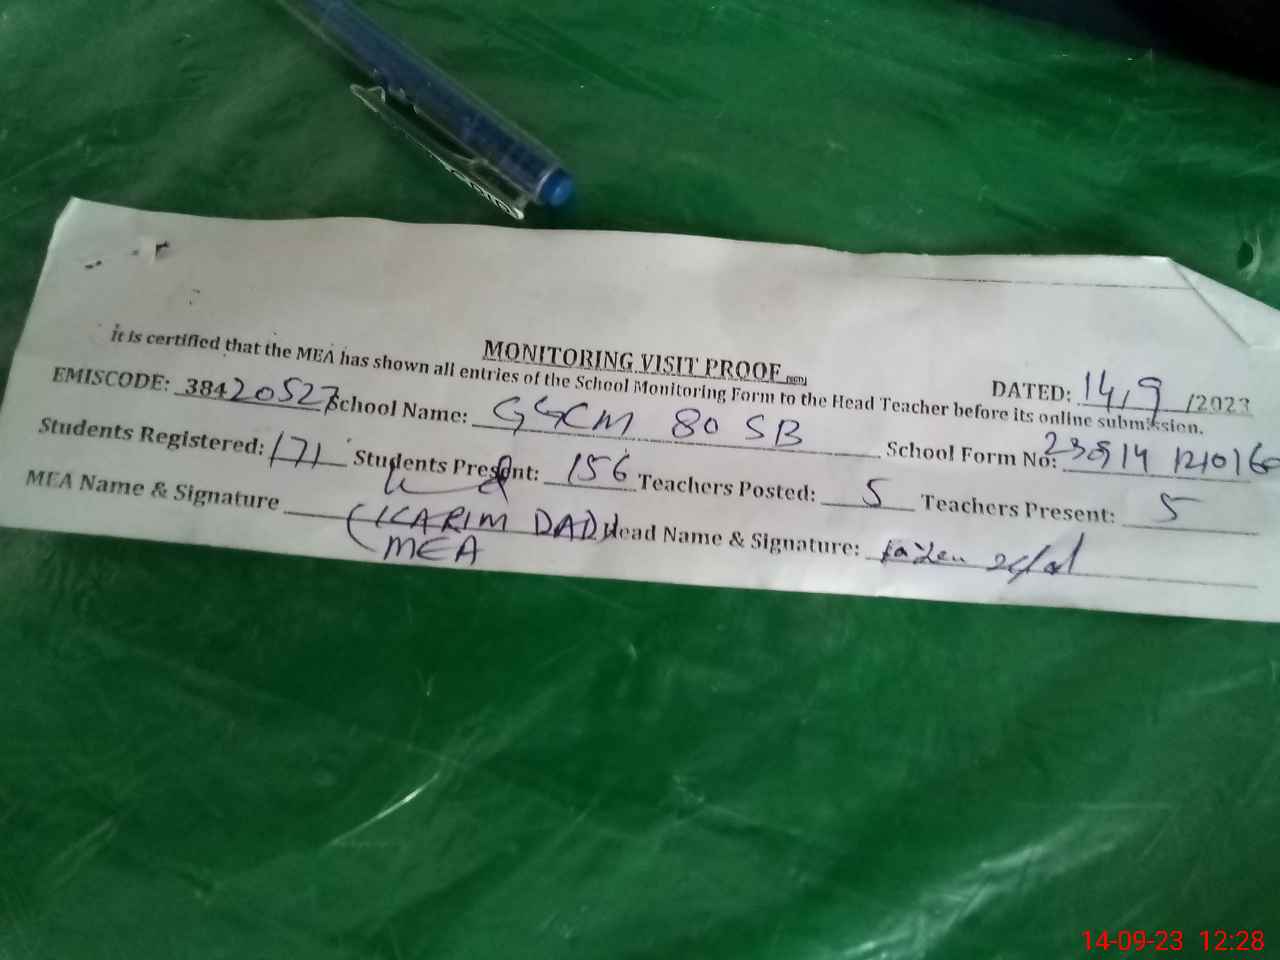 MONITORING VISIT PROOF
DATED: 14,9 /2023
It is certified that the MEA has shown all entries of the School Monitoring Form to the Head Teacher before its online submission.
EMISCODE: 38420527 School Name: GGCM 80 SB School Form No:
Students Registered: 171 Students Present: 156 Teachers Posted: 5 Teachers Present: 5
MEA Name & Signature (KARIM DAD) Head Name & Signature:
MEA
14-09-23 12:28